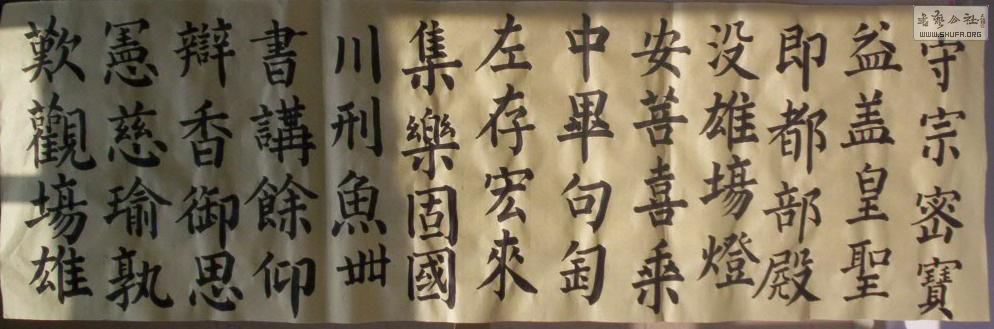 守宗密寶
益盖皇聖
即都部殿
没雄場燈
安菩喜乘
中畢句
左存宏來
集樂固國
川刑魚卌
書講餘仰
辯香御思
憲慈瑜孰
歎觀場雄
书艺公社
WWW.SHUFA.ORG